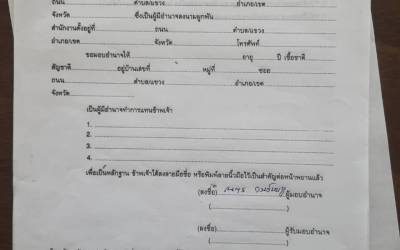 ถนน ตำบล/แขวง อำเภอ/เขต
จังหวัด ซึ่งเป็นผู้มีอำนาจลงนามผูกพัน
สำนักงานตั้งอยู่ที่ ถนน ตำบล/แขวง
อำเภอ/เขต จังหวัด โทรศัพท์
ขอมอบอำนาจให้ อายุ ปี เชื้อชาติ
สัญชาติ อยู่บ้านเลขที่ หมู่ที่ ซอย
ถนน ตำบล/แขวง อำเภอ/เขต
จังหวัด
เป็นผู้มีอำนาจทำการแทนข้าพเจ้า
1.
2.
3.
4.
เพื่อเป็นหลักฐาน ข้าพเจ้าได้ลงลายมือชื่อ หรือพิมพ์ลายนิ้วมือไว้เป็นสำคัญต่อหน้าพยานแล้ว
(ลงชื่อ) ผู้มอบอำนาจ
( )
(ลงชื่อ) ผู้รับมอบอำนาจ
( )